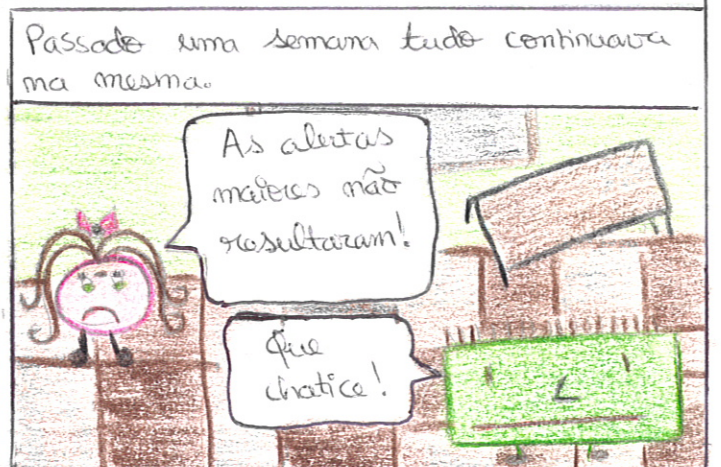 Passado uma semana tudo continuava
na mesma.
As alertas
maiores não
resultaram!
Que
chatice!